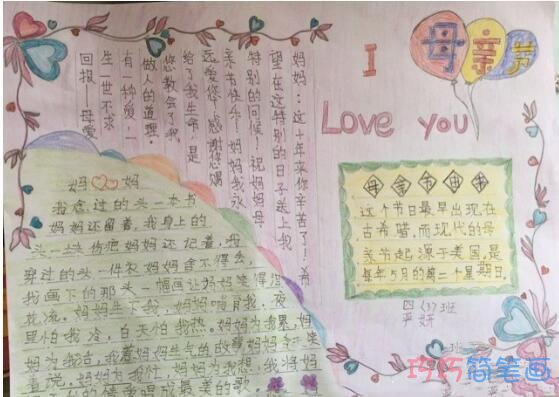 I
母亲节
Love you
妈妈：这十年来你辛苦了！希
望在这特别的日子送上我
特别的问候！祝妈妈母
亲节快乐！妈妈我永
远爱您！感谢您赐
给了我生命，是
您教会了我
做人的道理。
有一种爱，一
生一世不求
回报——母爱
妈 妈
我念过的头一本书
妈妈还留着，我身上的
头一块伤疤妈妈还记着，我
穿过的头一件衣妈妈舍不得丢，
我画下的那头一幅画让妈妈笑得泪
花流。妈妈生下我，妈妈喂育我。夜
里怕我冷，白天怕我热。妈妈为我累，妈
妈为我活，我惹妈妈生气的故事妈妈
直说。妈妈为我忙，妈妈为我想，我将妈
唱成最美的歌
母亲节由来
这个节日最早出现在
古希腊，而现代的母
亲节起源于美国，是
每年5月的第二个星期日。
四(3)班
严妍
巧巧简笔画